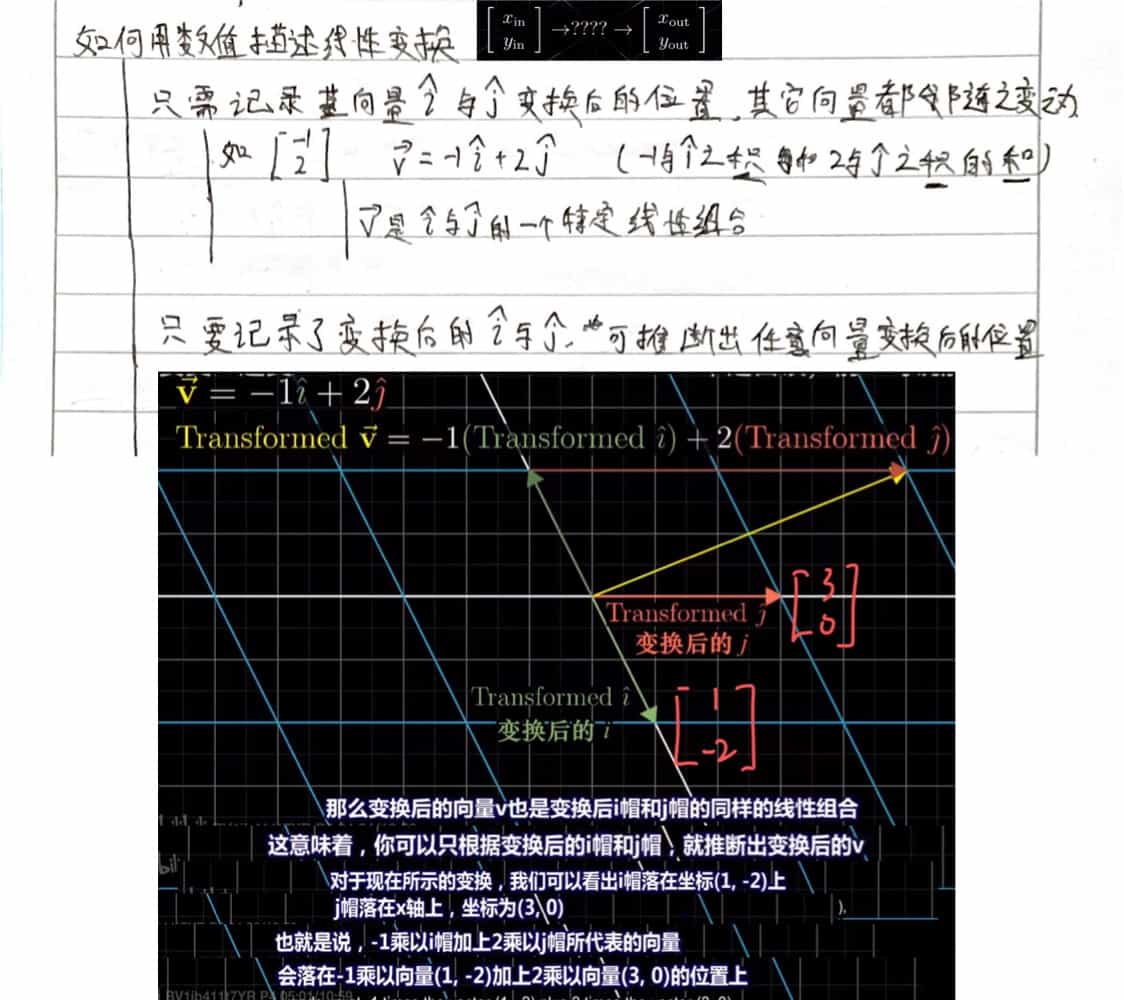 如何用数值描述线性变换
[x_in y_in] →????→ [x_out y_out]
只需记录基向量 î 与 ĵ 变换后的位置,其它向量都随之变动
如 [-1 2] v⃗ = -1î + 2ĵ (-1与î之积 和 2与ĵ之积的和)
v⃗是 î 与 ĵ 的一个特定线性组合
只要记录了变换后的 î 与 ĵ,可推断出任意向量变换后的位置
v⃗ = −1î + 2ĵ
Transformed v⃗ = −1(Transformed î) + 2(Transformed ĵ)
[3 0]
Transformed ĵ
变换后的 j
Transformed î
变换后的 i
[1 -2]
那么变换后的向量v也是变换后i帽和j帽的同样的线性组合
这意味着,你可以只根据变换后的i帽和j帽,就推断出变换后的v
对于现在所示的变换,我们可以看出i帽落在坐标(1, -2)上
j帽落在x轴上,坐标为(3, 0)
也就是说,-1乘以i帽加上2乘以j帽所代表的向量
会落在-1乘以向量(1, -2)加上2乘以向量(3, 0)的位置上